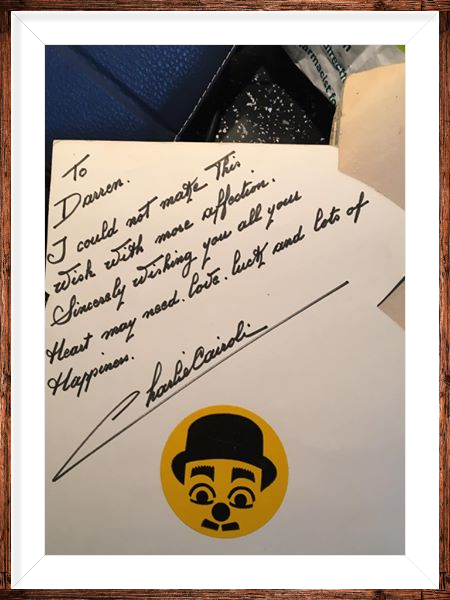 To
Darren.
I could not make This
wish with more affection.
Sincerely wishing you all your
Heart may need. love. luck and lots of
Happiness.
Charlie Cairoli